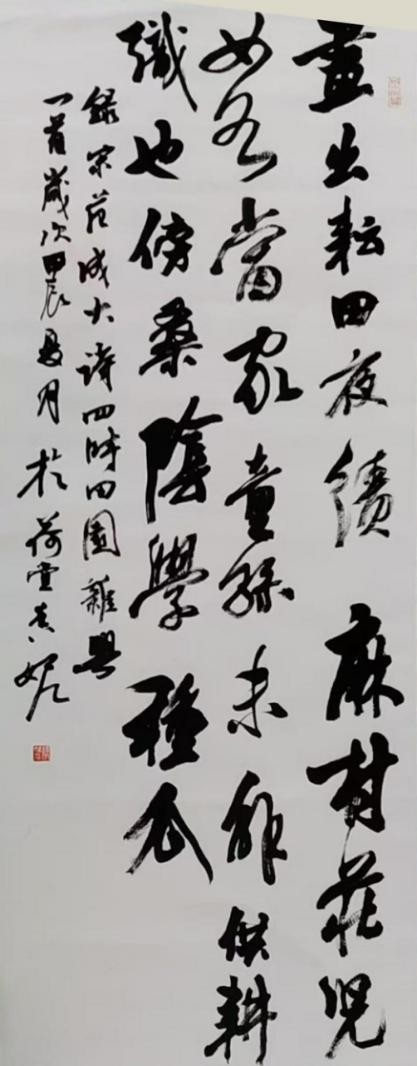 晝出耘田夜績麻村莊兒
女各當家童孫未解供耕
織也傍桑陰學種瓜
錄宋范成大詩四時田園雜興
一首歲次甲辰夏月於荷